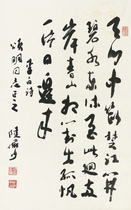 天门中断楚江开
碧水东流至此迴两
岸青山相对出孤帆
一片日边来
李白诗
颂明同志正之
陆俨少